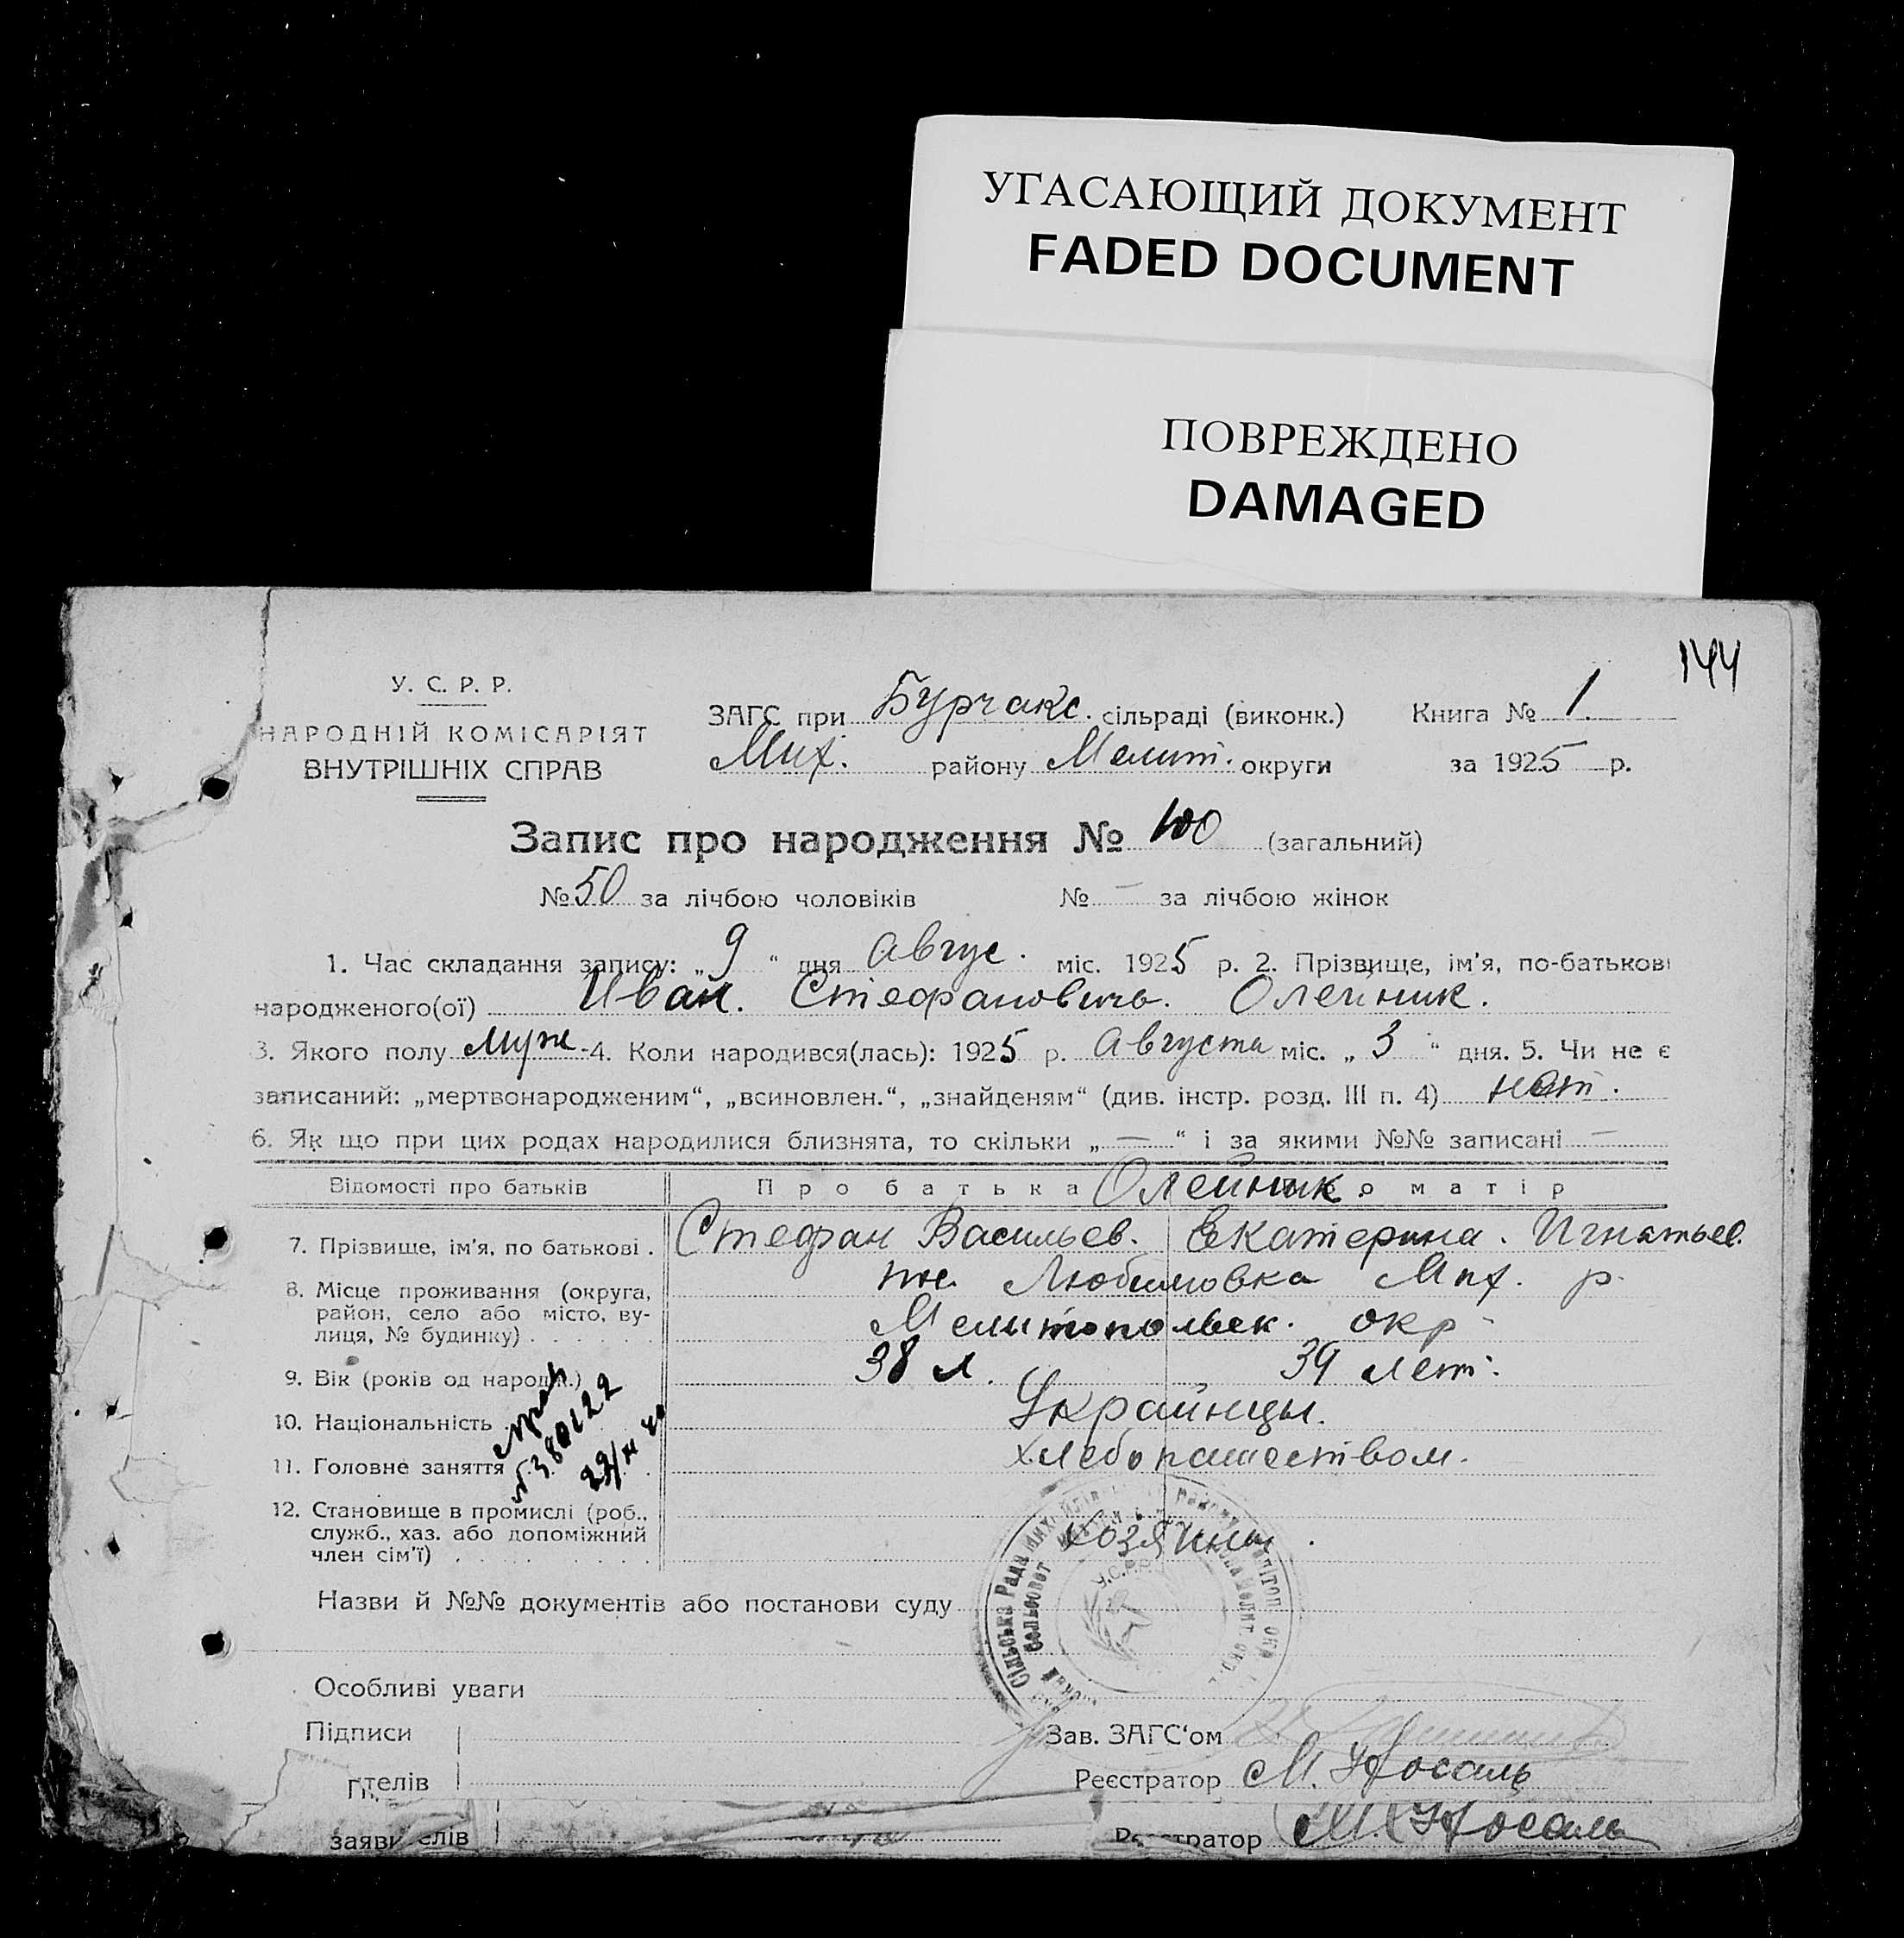 УГАСАЮЩИЙ ДОКУМЕНТ
FADED DOCUMENT
ПОВРЕЖДЕНО
DAMAGED
144
У. С. Р. Р.
НАРОДНІЙ КОМІСАРІЯТ
ВНУТРІШНІХ СПРАВ
ЗАГС при Бурчакс. сільраді (виконк.) Книга № 1.
Мих. району Мелит. округи за 1925 р.
Запис про народження № 100 (загальний)
№ 50 за лічбою чоловіків № — за лічбою жінок
1. Час складання запису: „ 9 “ дня Авгус. міс. 1925 р. 2. Прізвище, ім’я, по-батькові
народженого(ої) Иван. Стефановичъ. Олейник.
3. Якого полу муж. 4. Коли народився(лась): 1925 р. Августа міс. „ 3 “ дня. 5. Чи не є
записаний: „мертвонародженим“, „всиновлен.“, „знайденям“ (див. інстр. розд. III п. 4) нет.
6. Як що при цих родах народилися близнята, то скільки „ — “ і за якими №№ записані —
Відомості про батьків Про батька Олейник. матір
7. Прізвище, ім’я, по батькові . Стефан Васильев. Екатерина. Игнатьев.
8. Місце проживання (округа, Любимовка Мих. р.
район, село або місто, ву-
лиця, № будинку) . . . . . . Мелитопольск. окр
9. Вік (років од народж.) 38 л. 39 лет.
10. Національність Украйнцы.
11. Головне заняття хлебопашеством.
12. Становище в промислі (роб.,
служб., хаз. або допоміжний
член сім’ї) . . . . . . . . . . Хозяины.
Сільська Рада
У.С.Р.Р.
Назви й №№ документів або постанови суду
Особливі уваги
Підписи Зав. ЗАГС‘ом
телів Реєстратор М. Носаль
заяви елів Реєстратор М. Носаль